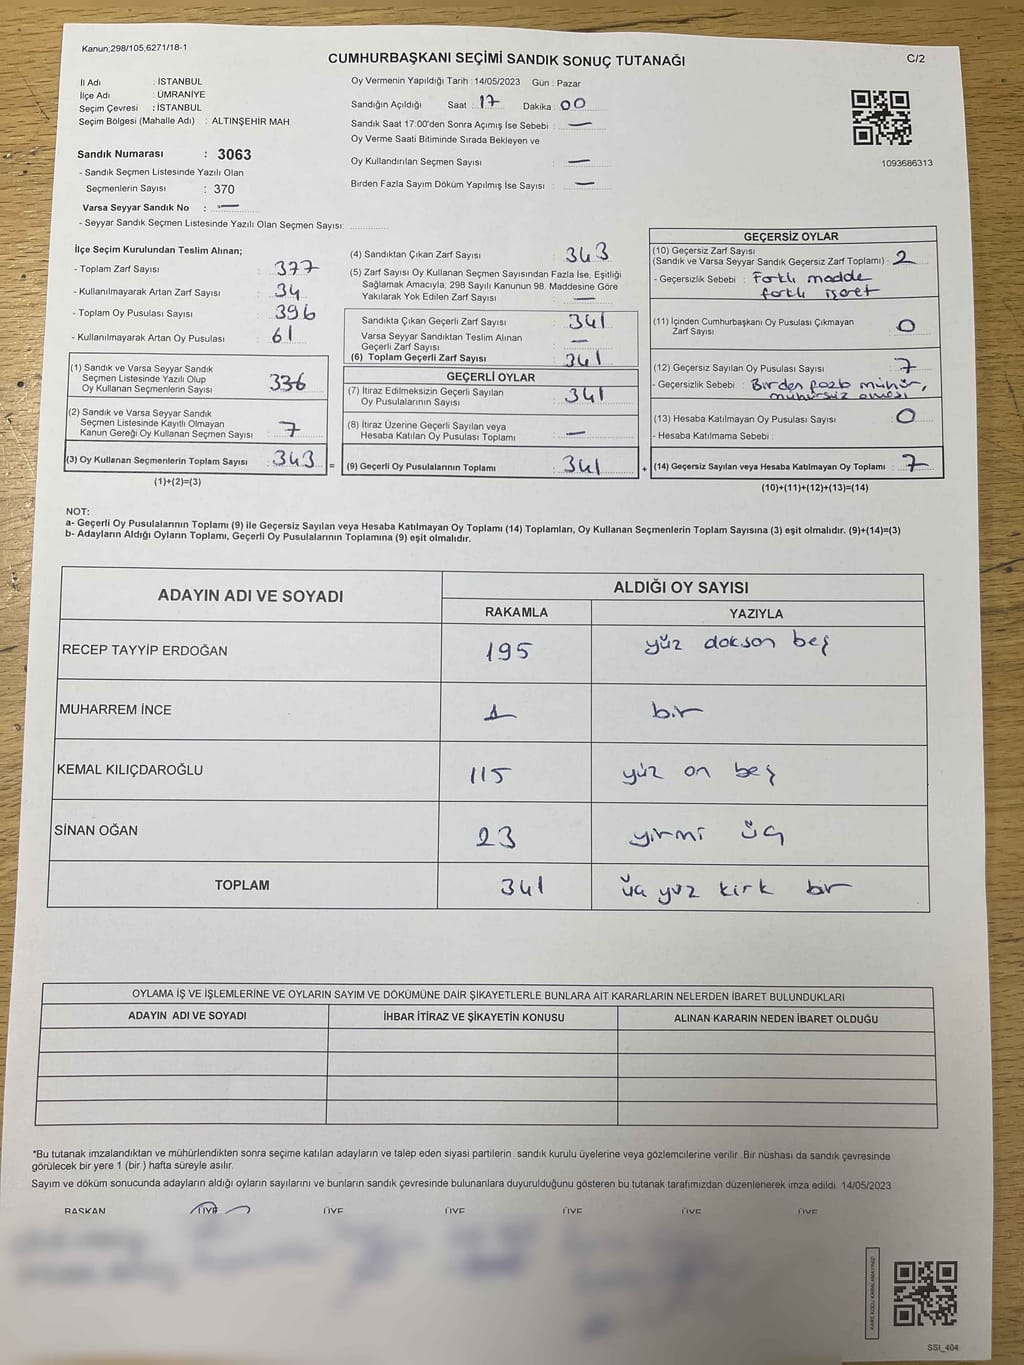 Kanun;298/105,6271/18-1
CUMHURBAŞKANI SEÇİMİ SANDIK SONUÇ TUTANAĞI
C/2
İl Adı : İSTANBUL
İlçe Adı : ÜMRANİYE
Seçim Çevresi : İSTANBUL
Seçim Bölgesi (Mahalle Adı) : ALTINŞEHİR MAH.
Sandık Numarası : 3063
- Sandık Seçmen Listesinde Yazılı Olan
Seçmenlerin Sayısı : 370
Varsa Seyyar Sandık No : —
- Seyyar Sandık Seçmen Listesinde Yazılı Olan Seçmen Sayısı:
Oy Vermenin Yapıldığı Tarih : 14/05/2023 Gün : Pazar
Sandığın Açıldığı Saat : 17 Dakika : 00
Sandık Saat 17:00'den Sonra Açımış İse Sebebi : —
Oy Verme Saati Bitiminde Sırada Bekleyen ve
Oy Kullandırılan Seçmen Sayısı : —
Birden Fazla Sayım Döküm Yapılmış İse Sayısı : —
1093686313
İlçe Seçim Kurulundan Teslim Alınan;
- Toplam Zarf Sayısı : 377
- Kullanılmayarak Artan Zarf Sayısı : 34
- Toplam Oy Pusulası Sayısı : 396
- Kullanılmayarak Artan Oy Pusulası : 61
(1) Sandık ve Varsa Seyyar Sandık
Seçmen Listesinde Yazılı Olup
Oy Kullanan Seçmenlerin Sayısı : 336
(2) Sandık ve Varsa Seyyar Sandık
Seçmen Listesinde Kayıtlı Olmayan
Kanun Gereği Oy Kullanan Seçmen Sayısı : 7
(3) Oy Kullanan Seçmenlerin Toplam Sayısı : 343
(1)+(2)=(3)
(4) Sandıktan Çıkan Zarf Sayısı : 343
(5) Zarf Sayısı Oy Kullanan Seçmen Sayısından Fazla İse, Eşitliği
Sağlamak Amacıyla, 298 Sayılı Kanunun 98. Maddesine Göre
Yakılarak Yok Edilen Zarf Sayısı : —
Sandıkta Çıkan Geçerli Zarf Sayısı : 341
Varsa Seyyar Sandıktan Teslim Alınan
Geçerli Zarf Sayısı : —
(6) Toplam Geçerli Zarf Sayısı : 341
GEÇERLİ OYLAR
(7) İtiraz Edilmeksizin Geçerli Sayılan
Oy Pusulalarının Sayısı : 341
(8) İtiraz Üzerine Geçerli Sayılan veya
Hesaba Katılan Oy Pusulası Toplamı : —
= (9) Geçerli Oy Pusulalarının Toplamı : 341
GEÇERSİZ OYLAR
(10) Geçersiz Zarf Sayısı
(Sandık ve Varsa Seyyar Sandık Geçersiz Zarf Toplamı) : 2
- Geçersizlik Sebebi : Farklı madde
farklı işaret
(11) İçinden Cumhurbaşkanı Oy Pusulası Çıkmayan
Zarf Sayısı : 0
(12) Geçersiz Sayılan Oy Pusulası Sayısı : 7
- Geçersizlik Sebebi : Birden fazla mühür,
mühürsüz olması
(13) Hesaba Katılmayan Oy Pusulası Sayısı : 0
- Hesaba Katılmama Sebebi :
+ (14) Geçersiz Sayılan veya Hesaba Katılmayan Oy Toplamı : 7
(10)+(11)+(12)+(13)=(14)
NOT:
a- Geçerli Oy Pusulalarının Toplamı (9) ile Geçersiz Sayılan veya Hesaba Katılmayan Oy Toplamı (14) Toplamları, Oy Kullanan Seçmenlerin Toplam Sayısına (3) eşit olmalıdır. (9)+(14)=(3)
b- Adayların Aldığı Oyların Toplamı, Geçerli Oy Pusulalarının Toplamına (9) eşit olmalıdır.
ADAYIN ADI VE SOYADI ALDIĞI OY SAYISI
RAKAMLA YAZIYLA
RECEP TAYYİP ERDOĞAN 195 yüz doksan beş
MUHARREM İNCE 1 bir
KEMAL KILIÇDAROĞLU 115 yüz on beş
SİNAN OĞAN 23 yirmi üç
TOPLAM 341 üç yüz kırk bir
OYLAMA İŞ VE İŞLEMLERİNE VE OYLARIN SAYIM VE DÖKÜMÜNE DAİR ŞİKAYETLERLE BUNLARA AİT KARARLARIN NELERDEN İBARET BULUNDUKLARI
ADAYIN ADI VE SOYADI İHBAR İTİRAZ VE ŞİKAYETİN KONUSU ALINAN KARARIN NEDEN İBARET OLDUĞU
*Bu tutanak imzalandıktan ve mühürlendikten sonra seçime katılan adayların ve talep eden siyasi partilerin sandık kurulu üyelerine veya gözlemcilerine verilir. Bir nüshası da sandık çevresinde
görülecek bir yere 1 (bir ) hafta süreyle asılır.
Sayım ve döküm sonucunda adayların aldığı oyların sayılarını ve bunların sandık çevresinde bulunanlara duyurulduğunu gösteren bu tutanak tarafımızdan düzenlenerek imza edildi. 14/05/2023
BAŞKAN ÜYE ÜYE ÜYE ÜYE ÜYE ÜYE
KARE KODU KARALAMAYINIZ!
SSI_404